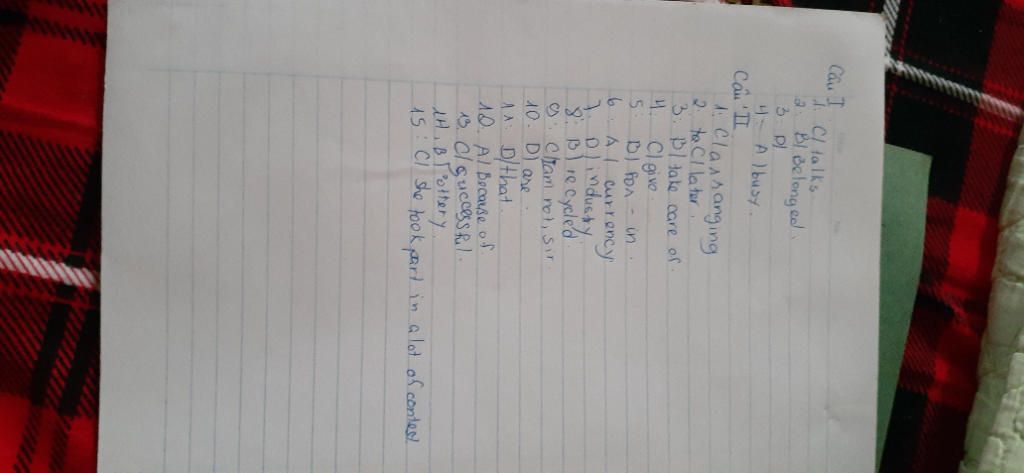 Câu I
1. C/ talks.
2. B) Belonged.
3. D)
4. A) busy.
Câu II
1: C/ arranging
2: C/ later.
3. B/ take care of.
4. C/ give.
5: D) for - in.
6. A/ currency
7. D) industry
8: B) recycled.
9: C/ I am not, sir.
10. D) are.
11. D/ that.
12. A/ Because of.
13. C/ successful.
14. B Pottery.
15: C/ She took part in a lot of contest